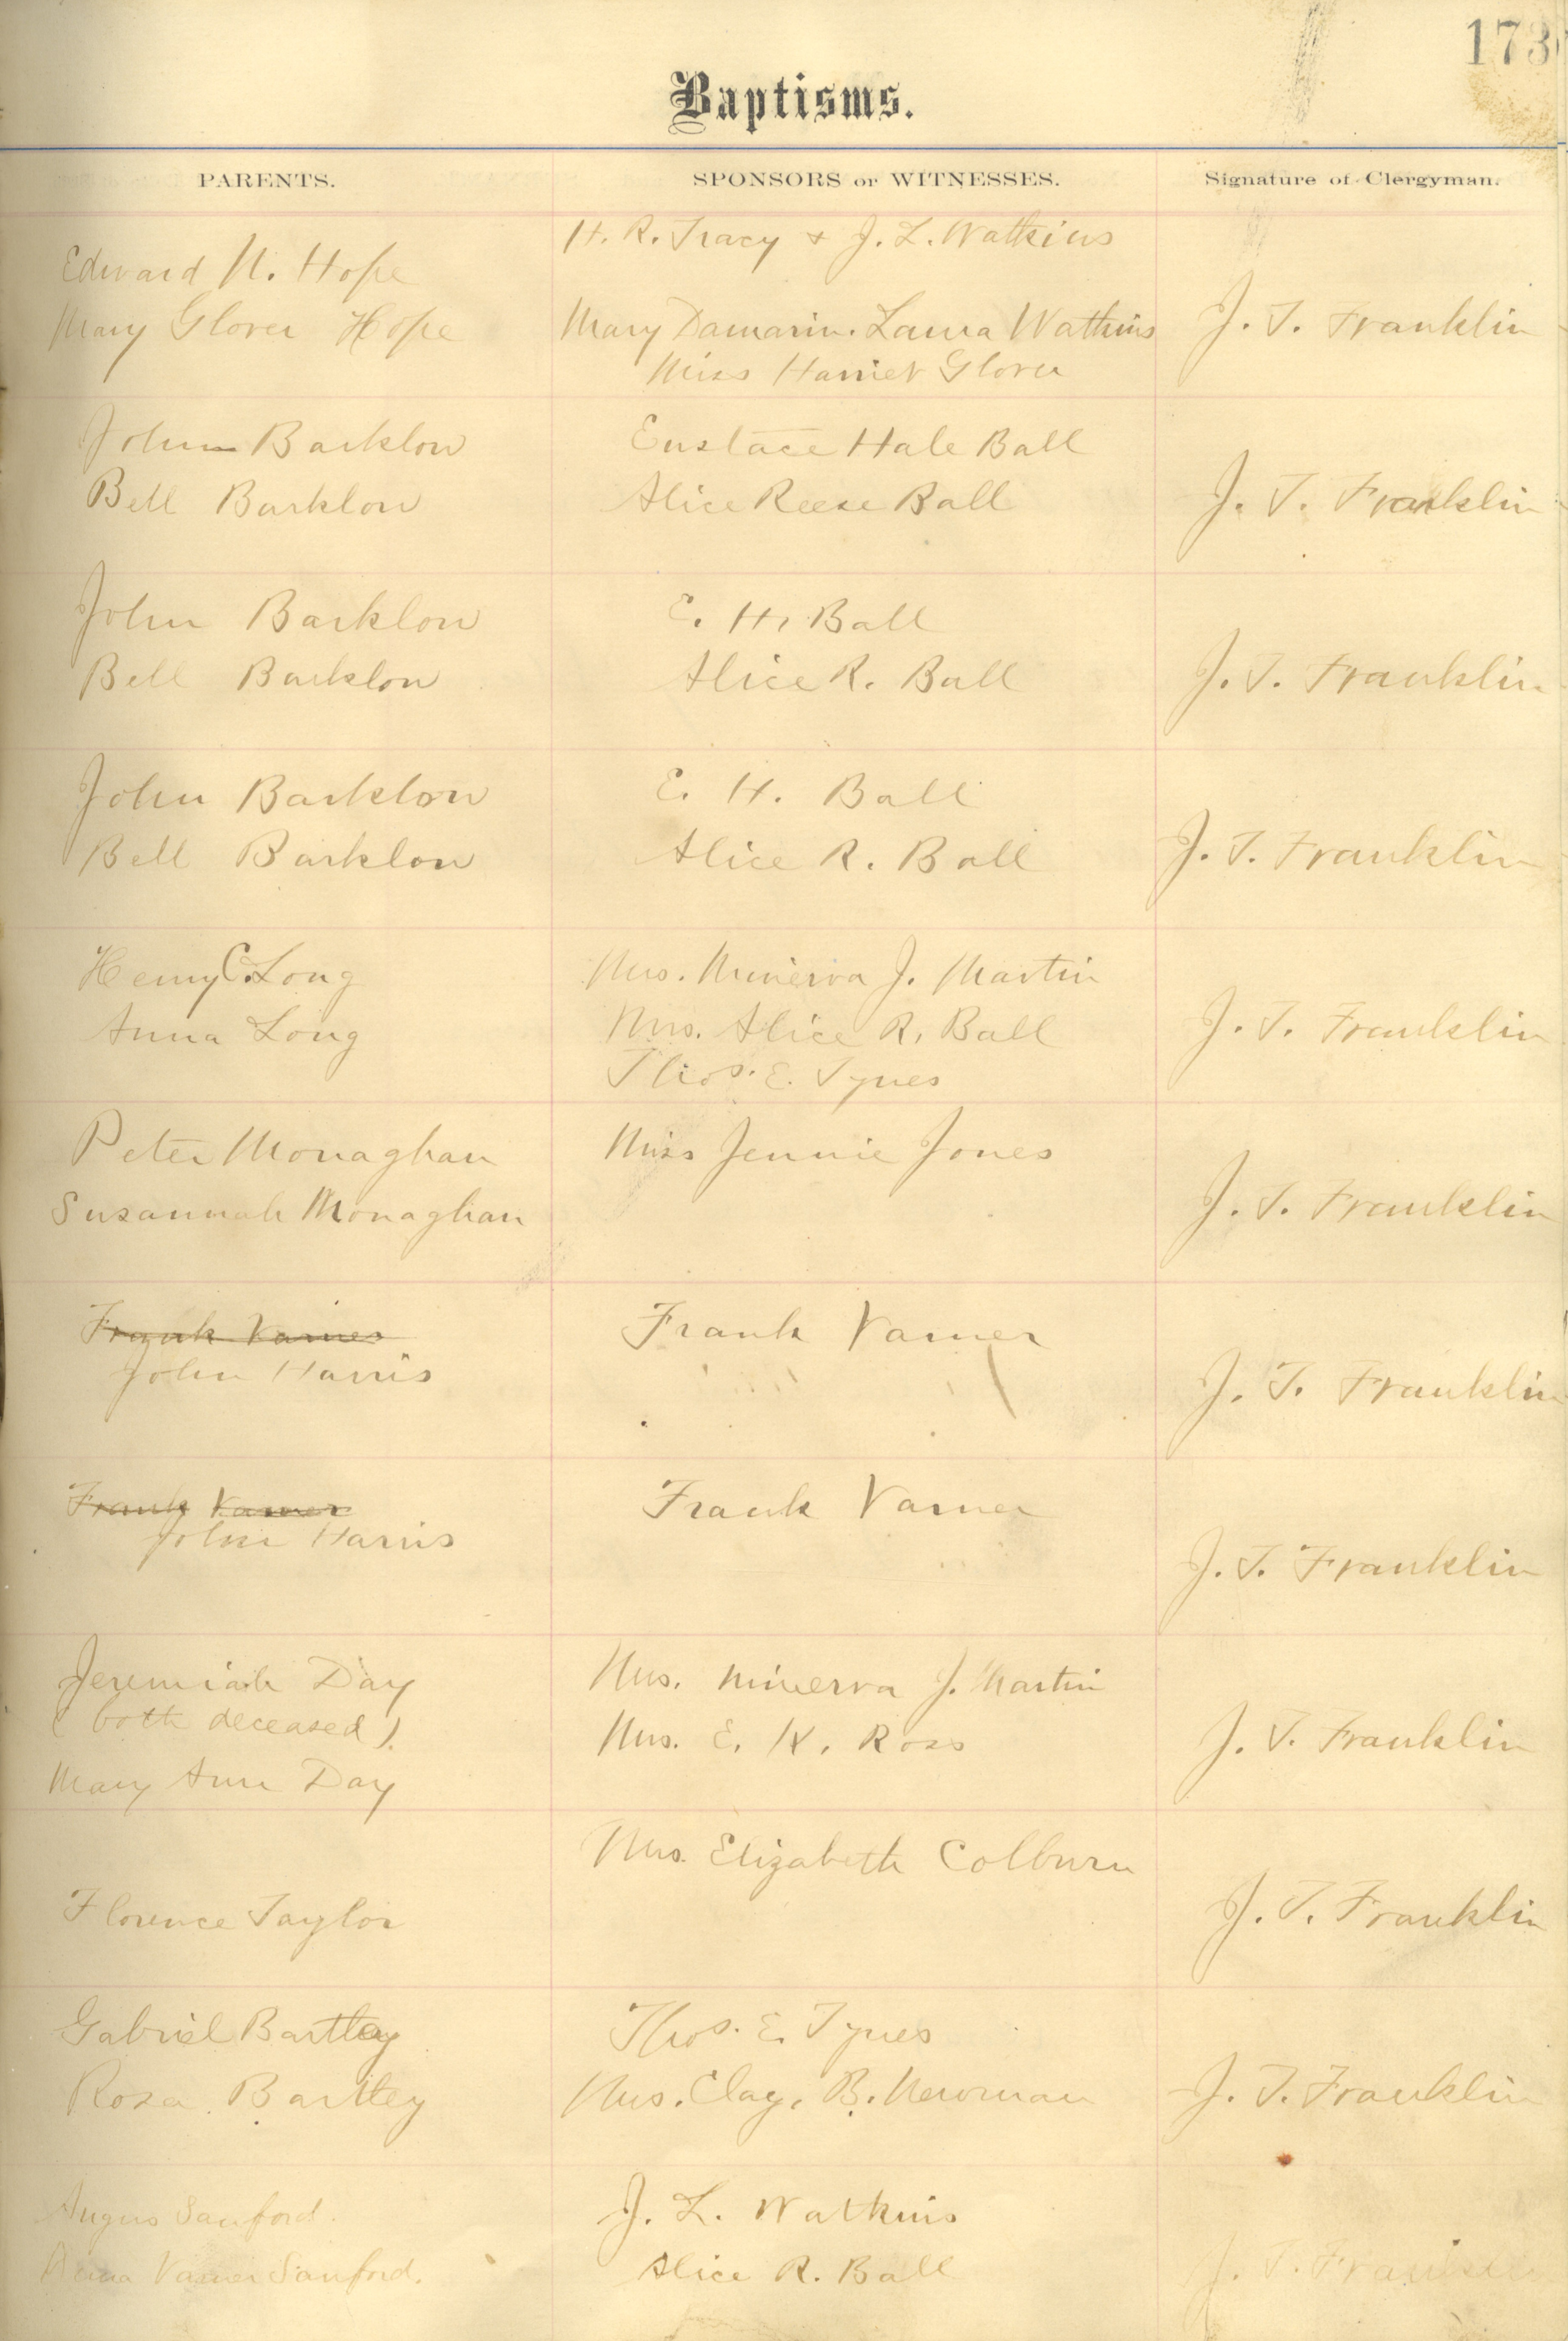 173
Baptisms.
PARENTS. SPONSORS or WITNESSES. Signature of Clergyman.
H. R. Tracy & J. L. Watkins
Edward N. Hope
Mary Glover Hope Mary Damarin. Laura Watkins J. T. Franklin
Miss Harriet Glover
John Barklow Eustace Hale Ball
Bell Barklow Alice Reese Ball J. T. Franklin
John Barklow E. H. Ball
Bell Barklow Alice R. Ball J. T. Franklin
John Barklow E. H. Ball
Bell Barklow Alice R. Ball J. T. Franklin
Henry C. Long Mrs. Minerva J. Martin
Anna Long Mrs. Alice R. Ball J. T. Franklin
Thos. E. Tynes
Peter Monaghan Miss Jennie Jones
Susannah Monaghan J. T. Franklin
Frank Varner Frank Varner
John Harris J. T. Franklin
Frank Varner Frank Varner
John Harris J. T. Franklin
Jeremiah Day Mrs. Minerva J. Martin
(both deceased). Mrs. E. K. Ross J. T. Franklin
Mary Ann Day
Mrs. Elizabeth Colburn
Florence Taylor J. T. Franklin
Gabriel Bartley Thos. E. Tynes
Rosa Bartley Mrs. Clay. B. Newman J. T. Franklin
Angus Sanford. J. L. Watkins
Varner Sanford. Alice R. Ball J. T. Franklin